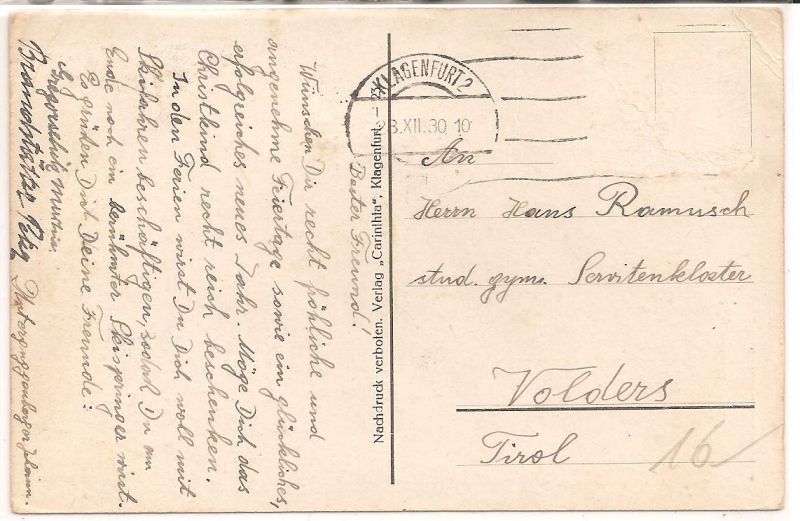 Bester Freund!
Wünschen Dir recht fröhliche und
angenehme Feiertage sowie ein glückliches,
erfolgreiches neues Jahr. Möge Dich das
Christkind recht reich beschenken.
In den Ferien wirst Du Dich woll mit
Skifahren beschäftigen, sodaß Du am
Ende noch ein berühmter Skispringer wirst.
Es grüßen Dich Deine Freunde:
Gregoritsch
Brandstätter
Unterguggenberger Johann.
Nachdruck verboten. Verlag „Carinthia", Klagenfurt.
KLAGENFURT 2
XII.30 10
An
Herrn Hans Ramusch
stud. gym. Servitenkloster
Volders
Tirol
16